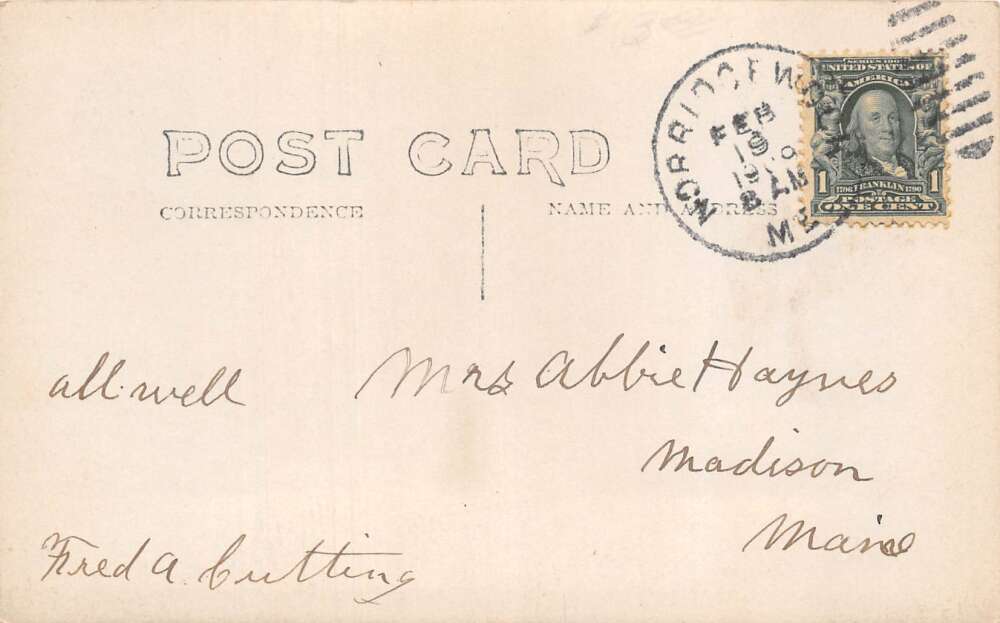 POST CARD
CORRESPONDENCE
NAME AND ADDRESS
NORRIDGEWOCK
FEB
19
8 AM
ME
SERIES 1902
UNITED STATES OF
AMERICA
1 1706 FRANKLIN 1790 1
POSTAGE
ONE CENT
all well
Mrs Abbie Haynes
Madison
Maine
Fred A. Cutting